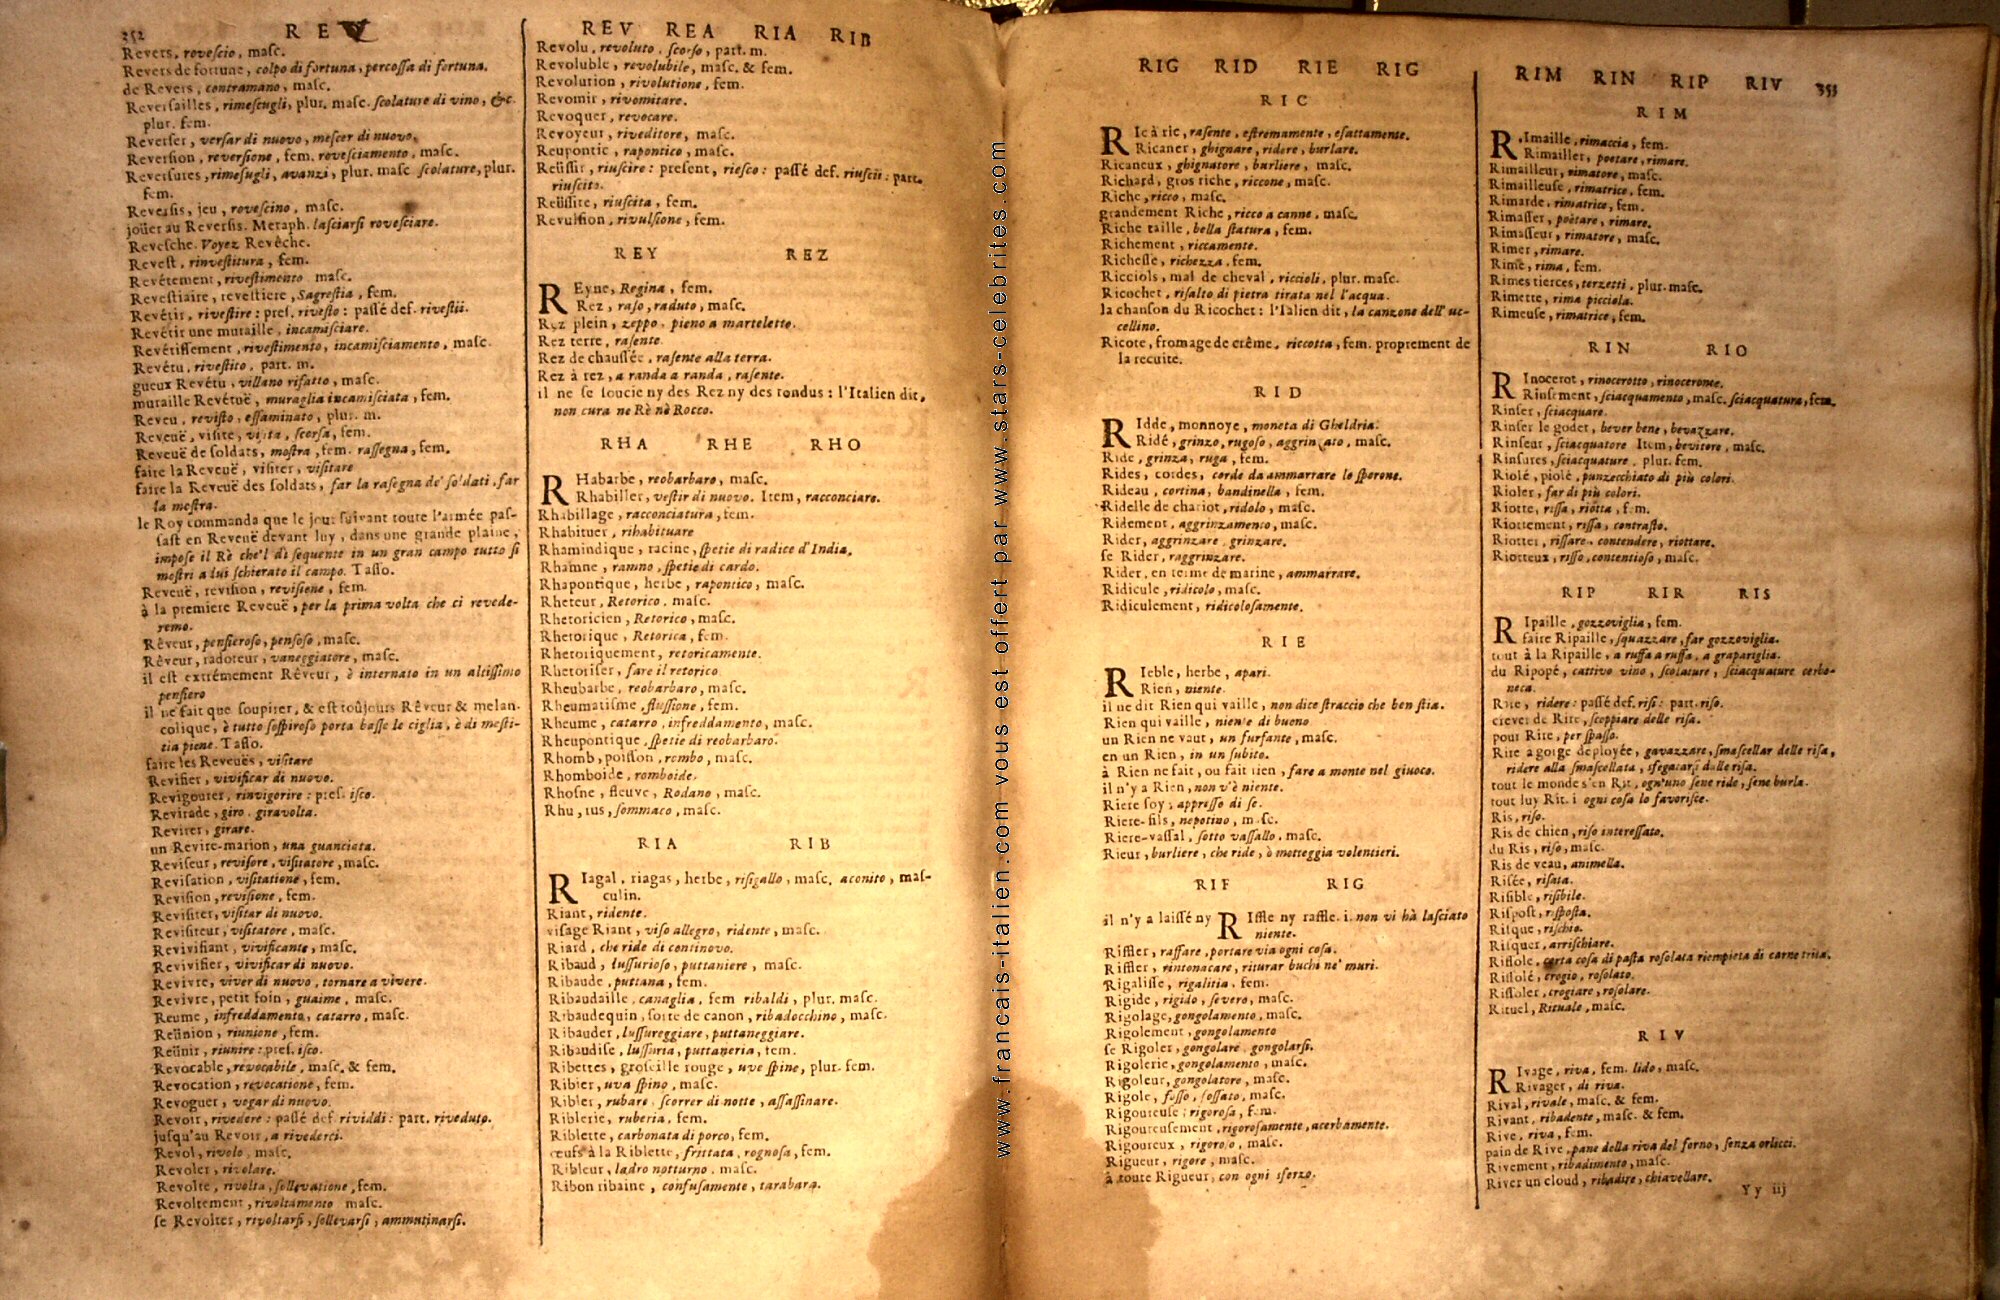 352 REV
Revers, rovescio, masc.
Revers de fortune, colpo di fortuna, percossa di fortuna.
de Revers, contramano, masc.
Reversailles, rimesugli, plur. masc. scolature di vino, &c.
plur. fem.
Reverser, versar di nuovo, mescer di nuovo.
Reversion, reversione, fem. rovesciamento, masc.
Reversures, rimesugli, avanzi, plur. masc scolature, plur.
fem.
Reversis, jeu, rovescino, masc.
joüer au Reversis. Metaph. lasciarsi rovesciare.
Revesche. Voyez Revêche.
Revest, rinvestitura, fem.
Revétement, rivestimento masc.
Revestiaire, revestiere, Sagrestia, fem.
Revétir, rivestire: pres. rivesto: passé def. rivestii.
Revétir une muraille, incamisciare.
Revétissement, rivestimento, incamisciamento, masc.
Revétu, rivestito, part. m.
gueux Revétu, villano rifatto, masc.
muraille Revétuë, muraglia incamisciata, fem.
Reveu, revisto, essaminato, plur. m.
Reveuë, visite, vista, scorsa, fem.
Reveuë de soldats, mostra, fem. rassegna, fem.
faire la Reveuë, visiter, visitare
faire la Reveuë des soldats, far la rasegna de' soldati, far
la mostra.
le Roy commanda que le jour suivant toute l'armée pas-
sast en Reveuë devant luy, dans une grande plaine,
impose il Rè che'l di sequente in un gran campo tutto si
mostri a lui schierato il campo. Tasso.
Reveuë, revision, revisione, fem.
à la premiere Reveuë, per la prima volta che ci revede-
remo.
Rêveur, pensieroso, pensoso, masc.
Rêveur, radoteur, vaneggiatore, masc.
il est extrémement Rêveur, è internato in un altissimo
pensiero
il ne fait que soupirer, & est toûjours Rêveur & melan-
colique, è tutto sospiroso porta basse le ciglia, è di mesti-
tia piene. Tasso.
faire les Reveuës, visitare
Revifier, vivificar di nuovo.
Revigourer, rinvigorire: pres. isco.
Revirade, giro, giravolta.
Revirer, girare.
un Revire-marion, una guanciata.
Reviseur, revisore, visitatore, masc.
Revisation, visitatione, fem.
Revision, revisione, fem.
Revisiter, visitar di nuovo.
Revisiteur, visitatore, masc.
Revivifiant, vivificante, masc.
Revivifier, vivificar di nuovo.
Revivre, viver di nuovo, tornare a vivere.
Revivre, petit foin, guaime, masc.
Reume, infreddamento, catarro, masc.
Reünion, riunione, fem.
Reünir, riunire: pres. isco.
Revocable, revocabile, masc. & fem.
Revocation, revocatione, fem.
Revoguer, vogar di nuovo.
Revoir, rivedere: passé def. rividdi: part. riveduto.
jusqu'au Revoir, a rivederci.
Revol, rivolo, masc.
Revoler, rivolare.
Revolte, rivolta, sollevatione, fem.
Revoltement, rivoltamento masc.
se Revolter, rivoltarsi, sollevarsi, ammutinarsi.
REV REA RIA RIB
Revolu, revoluto, scorso, part. m.
Revoluble, revolubile, masc. & fem.
Revolution, rivolutione, fem.
Revomir, rivomitare.
Revoquer, revocare.
Revoyeur, riveditore, masc.
Reupontic, rapontico, masc.
Reüssir, riuscire: present, riesco: passé def. riuscii: part.
riuscito.
Reüssite, riuscita, fem.
Revulsion, rivulsione, fem.
REY REZ
REyne, Regina, fem.
Rez, raso, raduto, masc.
Rez plein, zeppo, pieno a marteletto.
Rez terre, rasente.
Rez de chaussée, rasente alla terra.
Rez à rez, a randa a randa, rasente.
il ne se soucie ny des Rez ny des tondus: l'Italien dit,
non cura ne Rè nè Rocco.
RHA RHE RHO
RHabarbe, reobarbaro, masc.
Rhabiller, vestir di nuovo. Item, racconciare.
Rhabillage, racconciatura, fem.
Rhabituer, rihabituare
Rhamindique, racine, spetie di radice d'India.
Rhamne, ramno, spetie di cardo.
Rhapontique, herbe, rapontico, masc.
Rheteur, Retorico, masc.
Rhetoricien, Retorico, masc.
Rhetorique, Retorica, fem.
Rhetoriquement, retoricamente.
Rhetoriser, fare il retorico
Rheubarbe, reobarbaro, masc.
Rheumatisme, flussione, fem.
Rheume, catarro, infreddamento, masc.
Rheupontique, spetie di reobarbaro.
Rhomb, poisson, rombo, masc.
Rhomboide, romboide.
Rhosne, fleuve, Rodano, masc.
Rhu, rus, sommaco, masc.
RIA RIB
RIagal, riagas, herbe, risigallo, masc. aconito, mas-
culin.
Riant, ridente.
visage Riant, viso allegro, ridente, masc.
Riard, che ride di continovo.
Ribaud, lussurioso, puttaniere, masc.
Ribaude, puttana, fem.
Ribaudaille, canaglia, fem ribaldi, plur. masc.
Ribaudequin, sorte de canon, ribadocchino, masc.
Ribauder, lussureggiare, puttaneggiare.
Ribaudise, lussuria, puttaneria, fem.
Ribettes, groseille rouge, uve spine, plur. fem.
Ribier, uva spino, masc.
Ribler, rubare, scorrer di notte, assassinare.
Riblerie, ruberia, fem.
Riblette, carbonata di porco, fem.
œufs à la Riblette, frittata, rognosa, fem.
Ribleur, ladro notturno, masc.
Ribon ribaine, confusamente, tarabara.
www.francais-italien.com vous est offert par www.stars-celebrites.com
RIG RID RIE RIG
RIC
RIc à ric, rasente, estremamente, esattamente.
Ricaner, ghignare, ridere, burlare.
Ricaneux, ghignatore, burliere, masc.
Richard, gros riche, riccone, masc.
Riche, ricco, masc.
grandement Riche, ricco a canne, masc.
Riche taille, bella statura, fem.
Richement, riccamente.
Richesse, richezza, fem.
Ricciols, mal de cheval, riccioli, plur. masc.
Ricochet, risalto di pietra tirata nel l'acqua.
la chanson du Ricochet: l'Italien dit, la canzone dell' uc-
cellino.
Ricote, fromage de crême, riccotta, fem. proprement de
la recuite.
RID
RIdde, monnoye, moneta di Gheldria.
Ridé, grinzo, rugoso, aggrinzato, masc.
Ride, grinza, ruga, fem.
Rides, cordes, corde da ammarrare lo sperone.
Rideau, cortina, bandinella, fem.
Ridelle de chariot, ridolo, masc.
Ridement, aggrinzamento, masc.
Rider, aggrinzare, grinzare.
se Rider, raggrinzare.
Rider, en terme de marine, ammarrare.
Ridicule, ridicolo, masc.
Ridiculement, ridicolosamente.
RIE
RIeble, herbe, apari.
Rien, niente.
il ne dit Rien qui vaille, non dice straccio che ben stia.
Rien qui vaille, niente di buono
un Rien ne vaut, un furfante, masc.
en un Rien, in un subito.
à Rien ne fait, ou fait rien, fare a monte nel giuoco.
il n'y a Rien, non v'è niente.
Riere soy, appresso di se.
Riere-fils, nepotino, masc.
Riere-vassal, sotto vassallo, masc.
Rieur, burliere, che ride, ò motteggia volentieri.
RIF RIG
il n'y a laissé ny RIffle ny raffle. i. non vi hà lasciato
niente.
Riffler, raffare, portare via ogni cosa.
Riffler, rintonacare, riturar buchi ne' muri.
Rigalisse, rigalitia, fem.
Rigide, rigido, severo, masc.
Rigolage, gongolamento, masc.
Rigolement, gongolamento
se Rigoler, gongolare, gongolarsi.
Rigolerie, gongolamento, masc.
Rigoleur, gongolatore, masc.
Rigole, fosso, fossato, masc.
Rigoureuse, rigorosa, fem.
Rigoureusement, rigorosamente, acerbamente.
Rigoureux, rigoroso, masc.
Rigueur, rigore, masc.
à toute Rigueur, con ogni sforzo.
RIM RIN RIP RIV 353
RIM
RImaille, rimaccia, fem.
Rimailler, poetare, rimare.
Rimailleur, rimatore, masc.
Rimailleuse, rimatrice, fem.
Rimarde, rimatrice, fem.
Rimasser, poetare, rimare.
Rimasseur, rimatore, masc.
Rimer, rimare.
Rime, rima, fem.
Rimes tierces, terzetti, plur. masc.
Rimette, rima picciola.
Rimeuse, rimatrice, fem.
RIN RIO
RInocerot, rinocerotto, rinoceronte.
Rinsement, sciacquamento, masc. sciacquatura, fem.
Rinser, sciacquare.
Rinser le godet, bever bene, bevazzare.
Rinseur, sciacquatore Item, bevitore, masc.
Rinsures, sciacquature, plur. fem.
Riolé, piolé, punzecchiato di più colori.
Rioler, far di più colori.
Riotte, rissa, riotta, fem.
Riottement, rissa, contrasto.
Riotter, rissare, contendere, riottare.
Riotteux, risso, contentioso, masc.
RIP RIR RIS
RIpaille, gozzoviglia, fem.
faire Ripaille, squazzare, far gozzoviglia.
tout à la Ripaille, a ruffa a ruffa, a grapariglia.
du Ripopé, cattivo vino, scolature, sciacquature cerbo-
neca.
Rire, ridere: passé def. risi: part. riso.
crever de Rire, scoppiare delle risa.
pour Rire, per spasso.
Rire à gorge deployée, gavazzare, smascellar delle risa,
ridere alla smascellata, sfegatarsi dalle risa.
tout le monde s'en Rit, ogn'uno sene ride, sene burla.
tout luy Rit. i ogni cosa lo favorisce.
Ris, riso.
Ris de chien, riso interessato.
du Ris, riso, masc.
Ris de veau, animella.
Risée, risata.
Risible, risibile.
Rispost, risposta.
Risque, rischio.
Risquer, arrischiare.
Rissole, certa cosa di pasta rosolata riempieta di carne trita.
Rissolé, crogio, rosolato.
Rissoler, crogiare, rosolare.
Rituel, Rituale, masc.
RIV
RIvage, riva, fem. lido, masc.
Rivager, di riva.
Rival, rivale, masc. & fem.
Rivant, ribadente, masc. & fem.
Rive, riva, fem.
pain de Rive, pane della riva del forno, senza orlicci.
Rivement, ribadimento, masc.
River un cloud, ribadire, chiavellare.
Yy iij